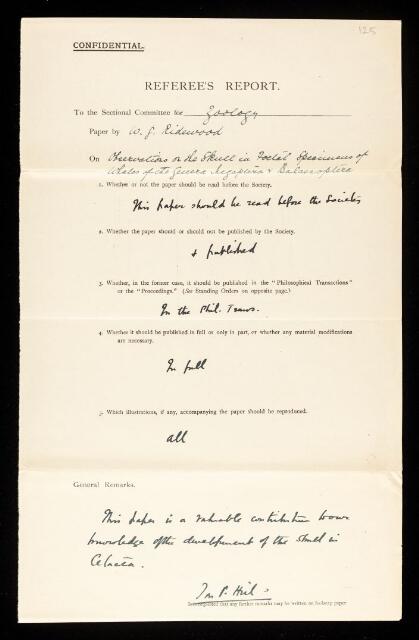 125
CONFIDENTIAL.
REFEREE'S REPORT.
To the Sectional Committee for Zoology
Paper by W. G. Ridewood
On Observations on the Skull in Foetal Specimens of
Whales of the Genera Megaptera & Balaenoptera
1. Whether or not the paper should be read before the Society.
This paper should be read before the Society
2. Whether the paper should or should not be published by the Society.
& published
3. Whether, in the former case, it should be published in the "Philosophical Transactions"
or the "Proceedings." (See Standing Orders on opposite page.)
In the Phil. Trans.
4. Whether it should be published in full or only in part, or whether any material modifications
are necessary.
In full
5. Which illustrations, if any, accompanying the paper should be reproduced.
all
General Remarks.
This paper is a valuable contribution to our
knowledge of the development of the skull in
Cetacea.
Jas P. Hill
It is requested that any further remarks may be written on foolscap paper